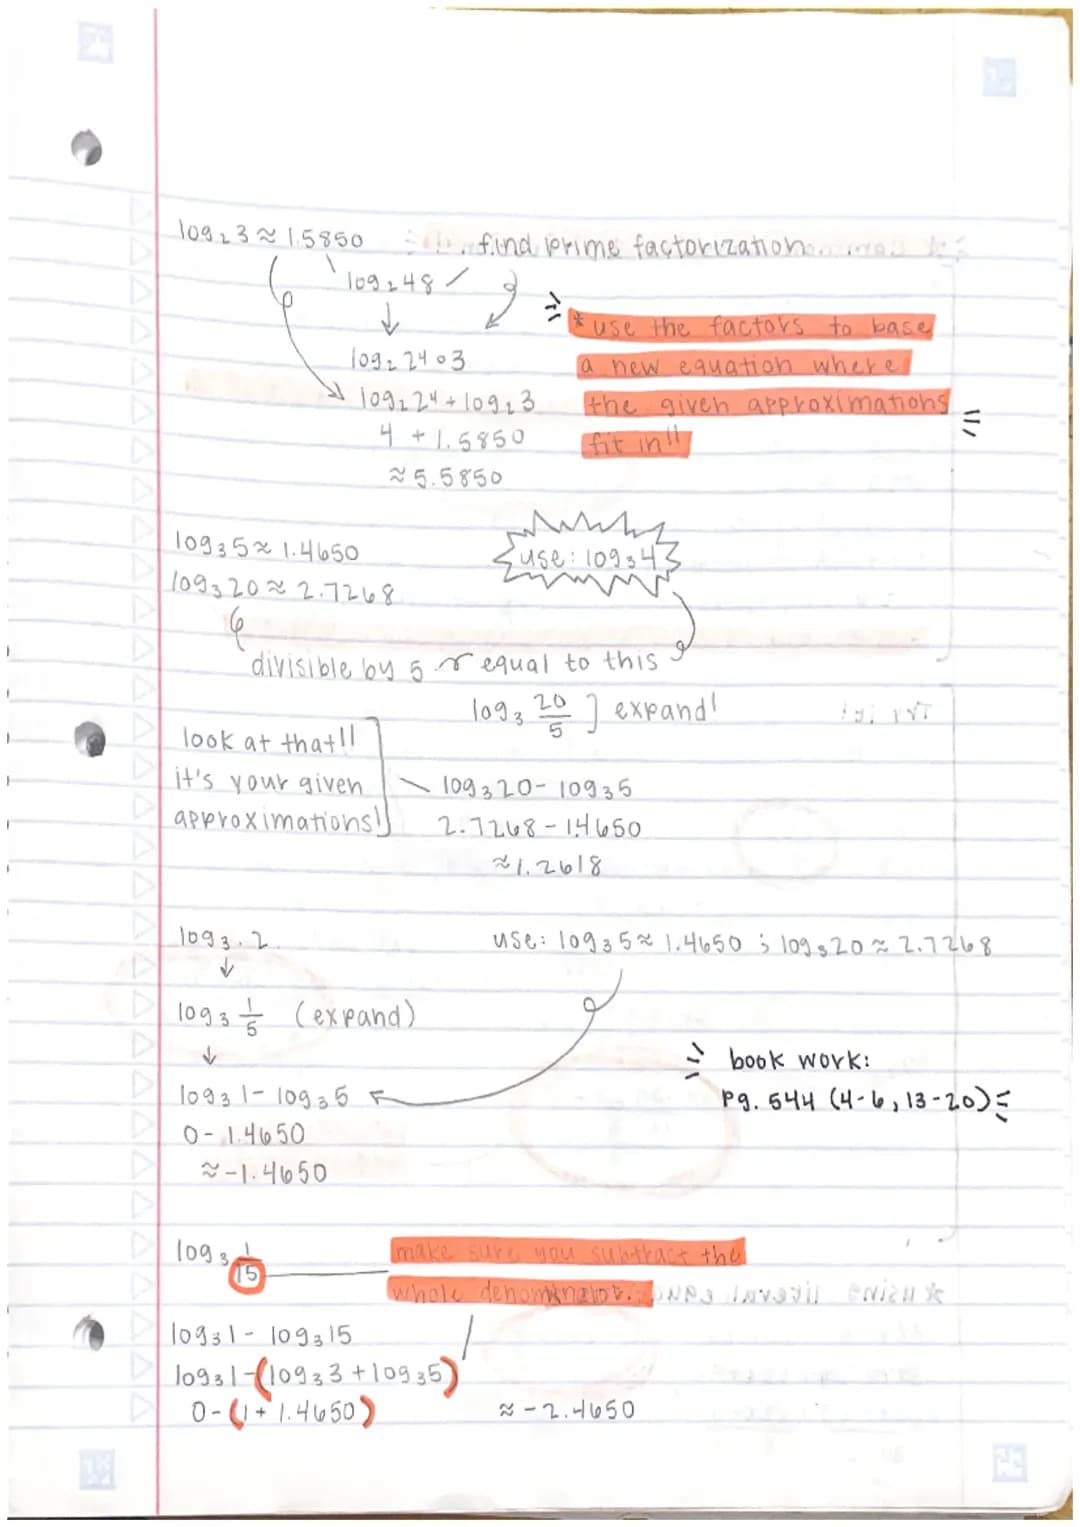 log₂3 ≈ 1.5850
find prime factorization
log₂48
log₂2⁴·3
* use the factors to base
a new equation where
log₂2⁴ + log₂3
the given approximations
4 + 1.5850
fit in!!
≈ 5.5850
log₃5 ≈ 1.4650
use: log₃4
log₃20 ≈ 2.7268
divisible by 5
equal to this
log₃ 20/5 ] expand!
look at that!!
it's your given
approximations!
log₃20 - log₃5
2.7268 - 1.4650
≈ 1.2618
log₃.2
use: log₃5 ≈ 1.4650 ; log₃20 ≈ 2.7268
log₃ 1/5 (expand)
book work:
log₃1 - log₃5
pg. 544 (4-6, 13-20)
0 - 1.4650
≈ -1.4650
log₃ 1/15
make sure you subtract the
whole denominator.
log₃1 - log₃15
log₃1 - (log₃3 + log₃5)
0 - (1 + 1.4650)
≈ -2.4650